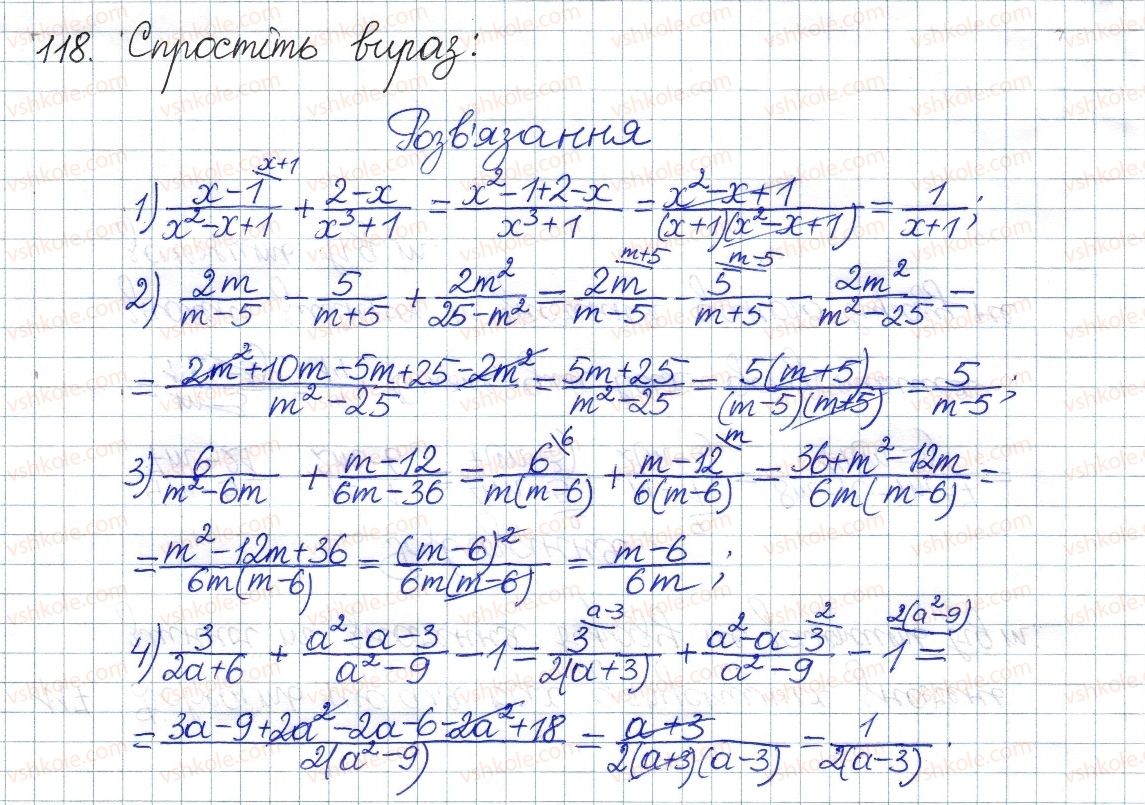 118. Спростіть вираз:
Розв'язання
1) (x-1)/(x²-x+1) \x+1 + (2-x)/(x³+1) = (x²-1+2-x)/(x³+1) = (x²-x+1)/((x+1)(x²-x+1)) = 1/(x+1);
2) 2m/(m-5) - 5/(m+5) + 2m²/(25-m²) = 2m/(m-5) \m+5 - 5/(m+5) \m-5 - 2m²/(m²-25) =
= (2m²+10m-5m+25-2m²)/(m²-25) = (5m+25)/(m²-25) = 5(m+5)/((m-5)(m+5)) = 5/(m-5);
3) 6/(m²-6m) + (m-12)/(6m-36) = 6/(m(m-6)) \6 + (m-12)/(6(m-6)) \m = (36+m²-12m)/(6m(m-6)) =
= (m²-12m+36)/(6m(m-6)) = (m-6)²/(6m(m-6)) = (m-6)/(6m);
4) 3/(2a+6) + (a²-a-3)/(a²-9) - 1 = 3/(2(a+3)) \a-3 + (a²-a-3)/(a²-9) \2 - 1 \2(a²-9) =
= (3a-9+2a²-2a-6-2a²+18)/(2(a²-9)) = (a+3)/(2(a+3)(a-3)) = 1/(2(a-3)).
vshkole.com